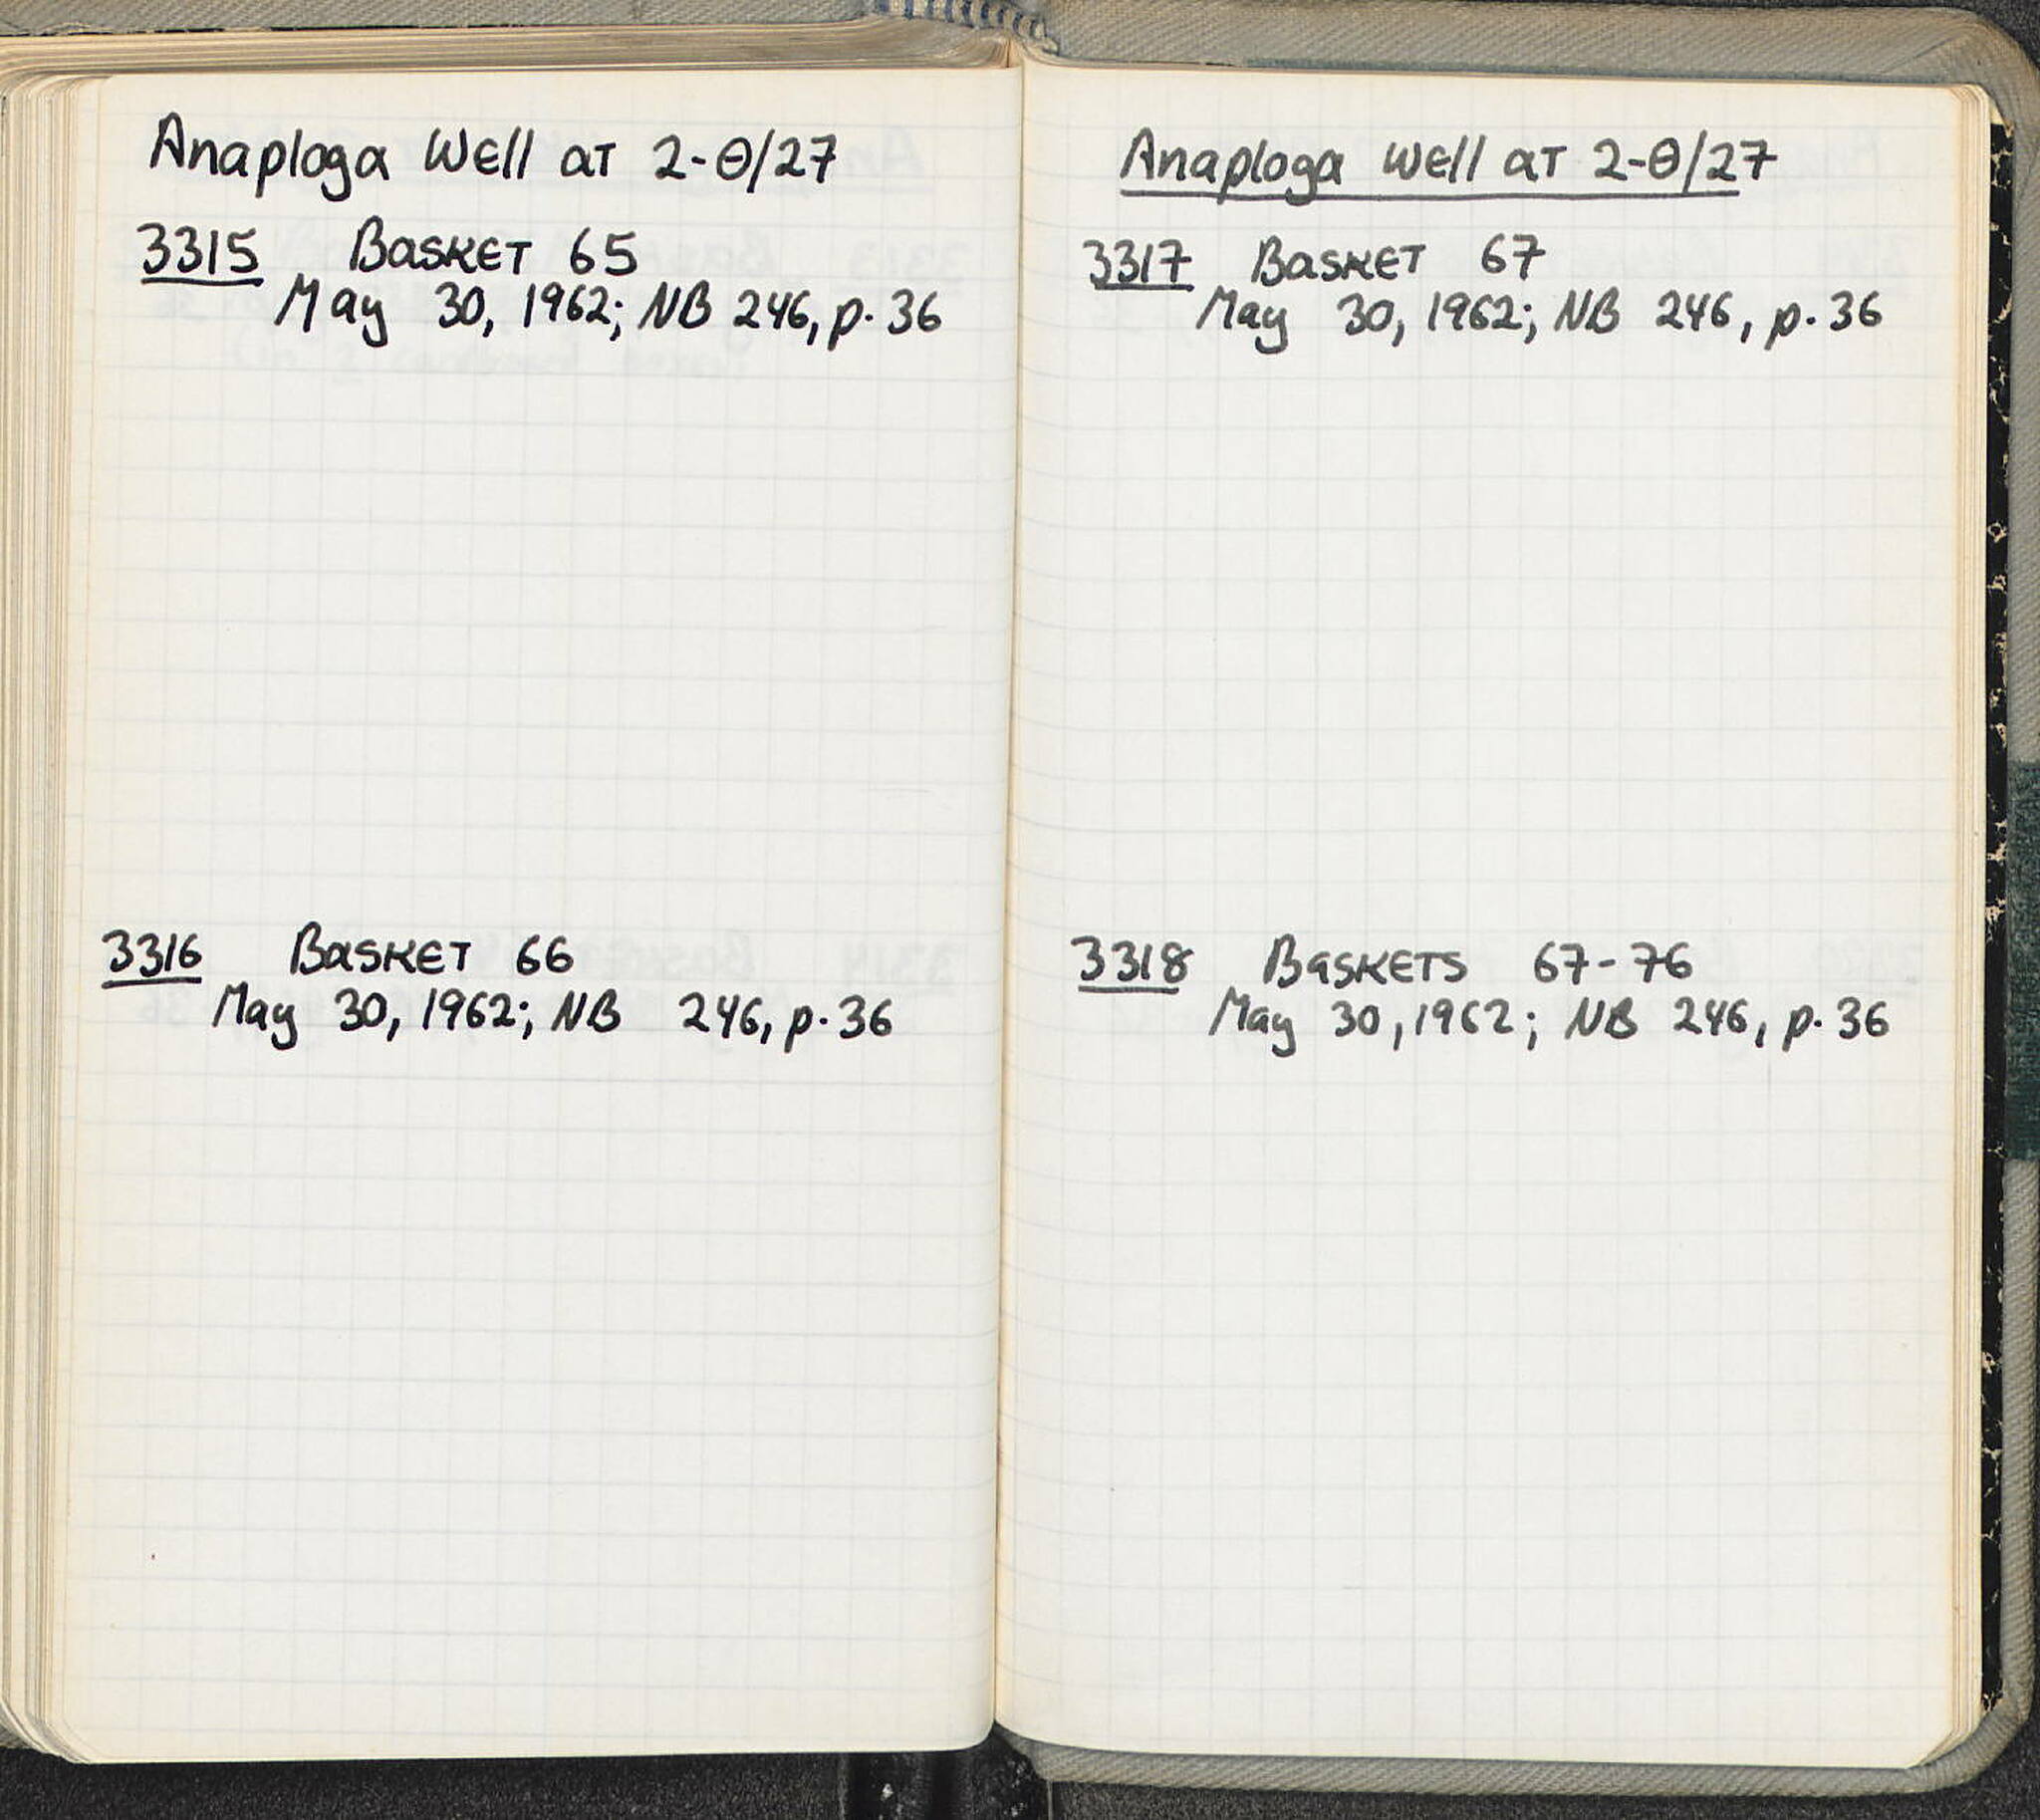 Anaploga Well at 2-Θ/27
3315 Basket 65
May 30, 1962; NB 246, p. 36
3316 Basket 66
May 30, 1962; NB 246, p. 36
Anaploga Well at 2-Θ/27
3317 Basket 67
May 30, 1962; NB 246, p. 36
3318 Baskets 67-76
May 30, 1962; NB 246, p. 36